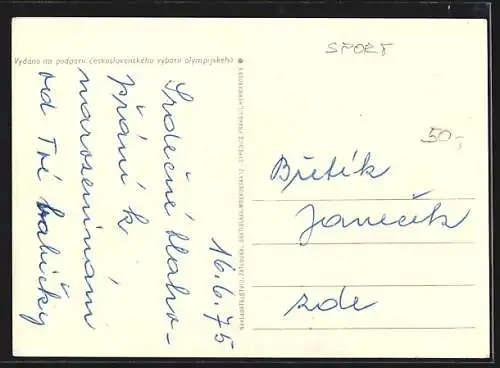 Vydáno na podporu československého výboru olympijského
16.6.75
Srdečné blaho-
přání k
narozeninám
od Tvé babičky
SPORT
50,-
Břetík
Janečík
zde